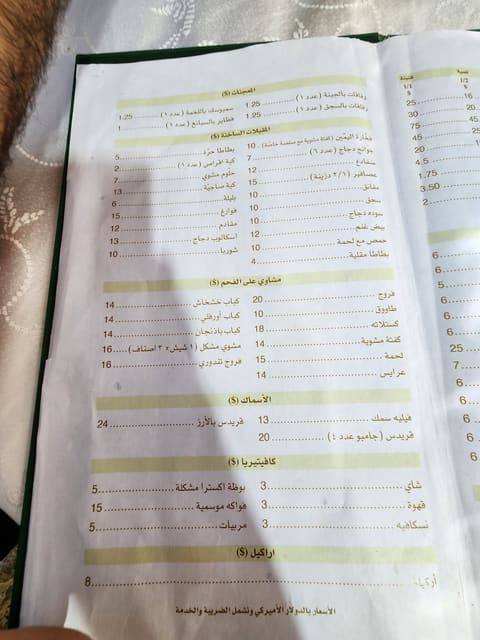 المعجنات ($)
رقاقات بالجبنة (عدد ١) 1.25
رقاقات بالسجق (عدد ١) 1.25
سمبوسك باللحمة (عدد ١) 1.25
فطاير بالسبانخ (عدد ١) 1
المقبلات الساخنة ($)
(كفتة مشوية مع صلصة خاصة) 10
جوانح دجاج (عدد ٦) 7
ضفادع 12
عصافير (٢/١ دزينة) 15
مقانق 10
سجق 10
سوده دجاج 10
بيض غنم 12
حمص مع لحمة 10
بطاطا مقلية 4
بطاطا حرّة 5
كبة اقراص (عدد ١) 2
حلوم مشوي 7
كبة صاجيّة 13
بليلة 6
فوارغ 15
مقادم 12
اسكالوب دجاج 13
شوربا 10
مشاوي على الفحم ($)
فروج 20
طاووق 10
كستلاته 18
كفتة مشوية 14
لحمة 15
عرايس 14
كباب خشخاش 14
كباب أورفلي 14
كباب باذنجان 14
مشوي مشكل (١ شيش x ٣ اصناف) 16
فروج تندوري 16
الأسماك ($)
فيليه سمك 13
قريدس (جامبو عدد ٤) 20
قريدس بالأرز 24
كافيتيريا ($)
شاي 3
قهوة 3
نسكافيه 3
بوظة اكسترا مشكلة 5
فواكه موسمية 15
مربيات 5
اراكيل ($)
أركيلة 8
الأسعار بالدولار الأميركي وتشمل الضريبة والخدمة
نصية
1/2
$
16
20
45
25
قنينة
1/1
$
25
30
75
45
20
4.5
1.75
3.50
2
6
6
5
6
6
25
7
6
6
6
6